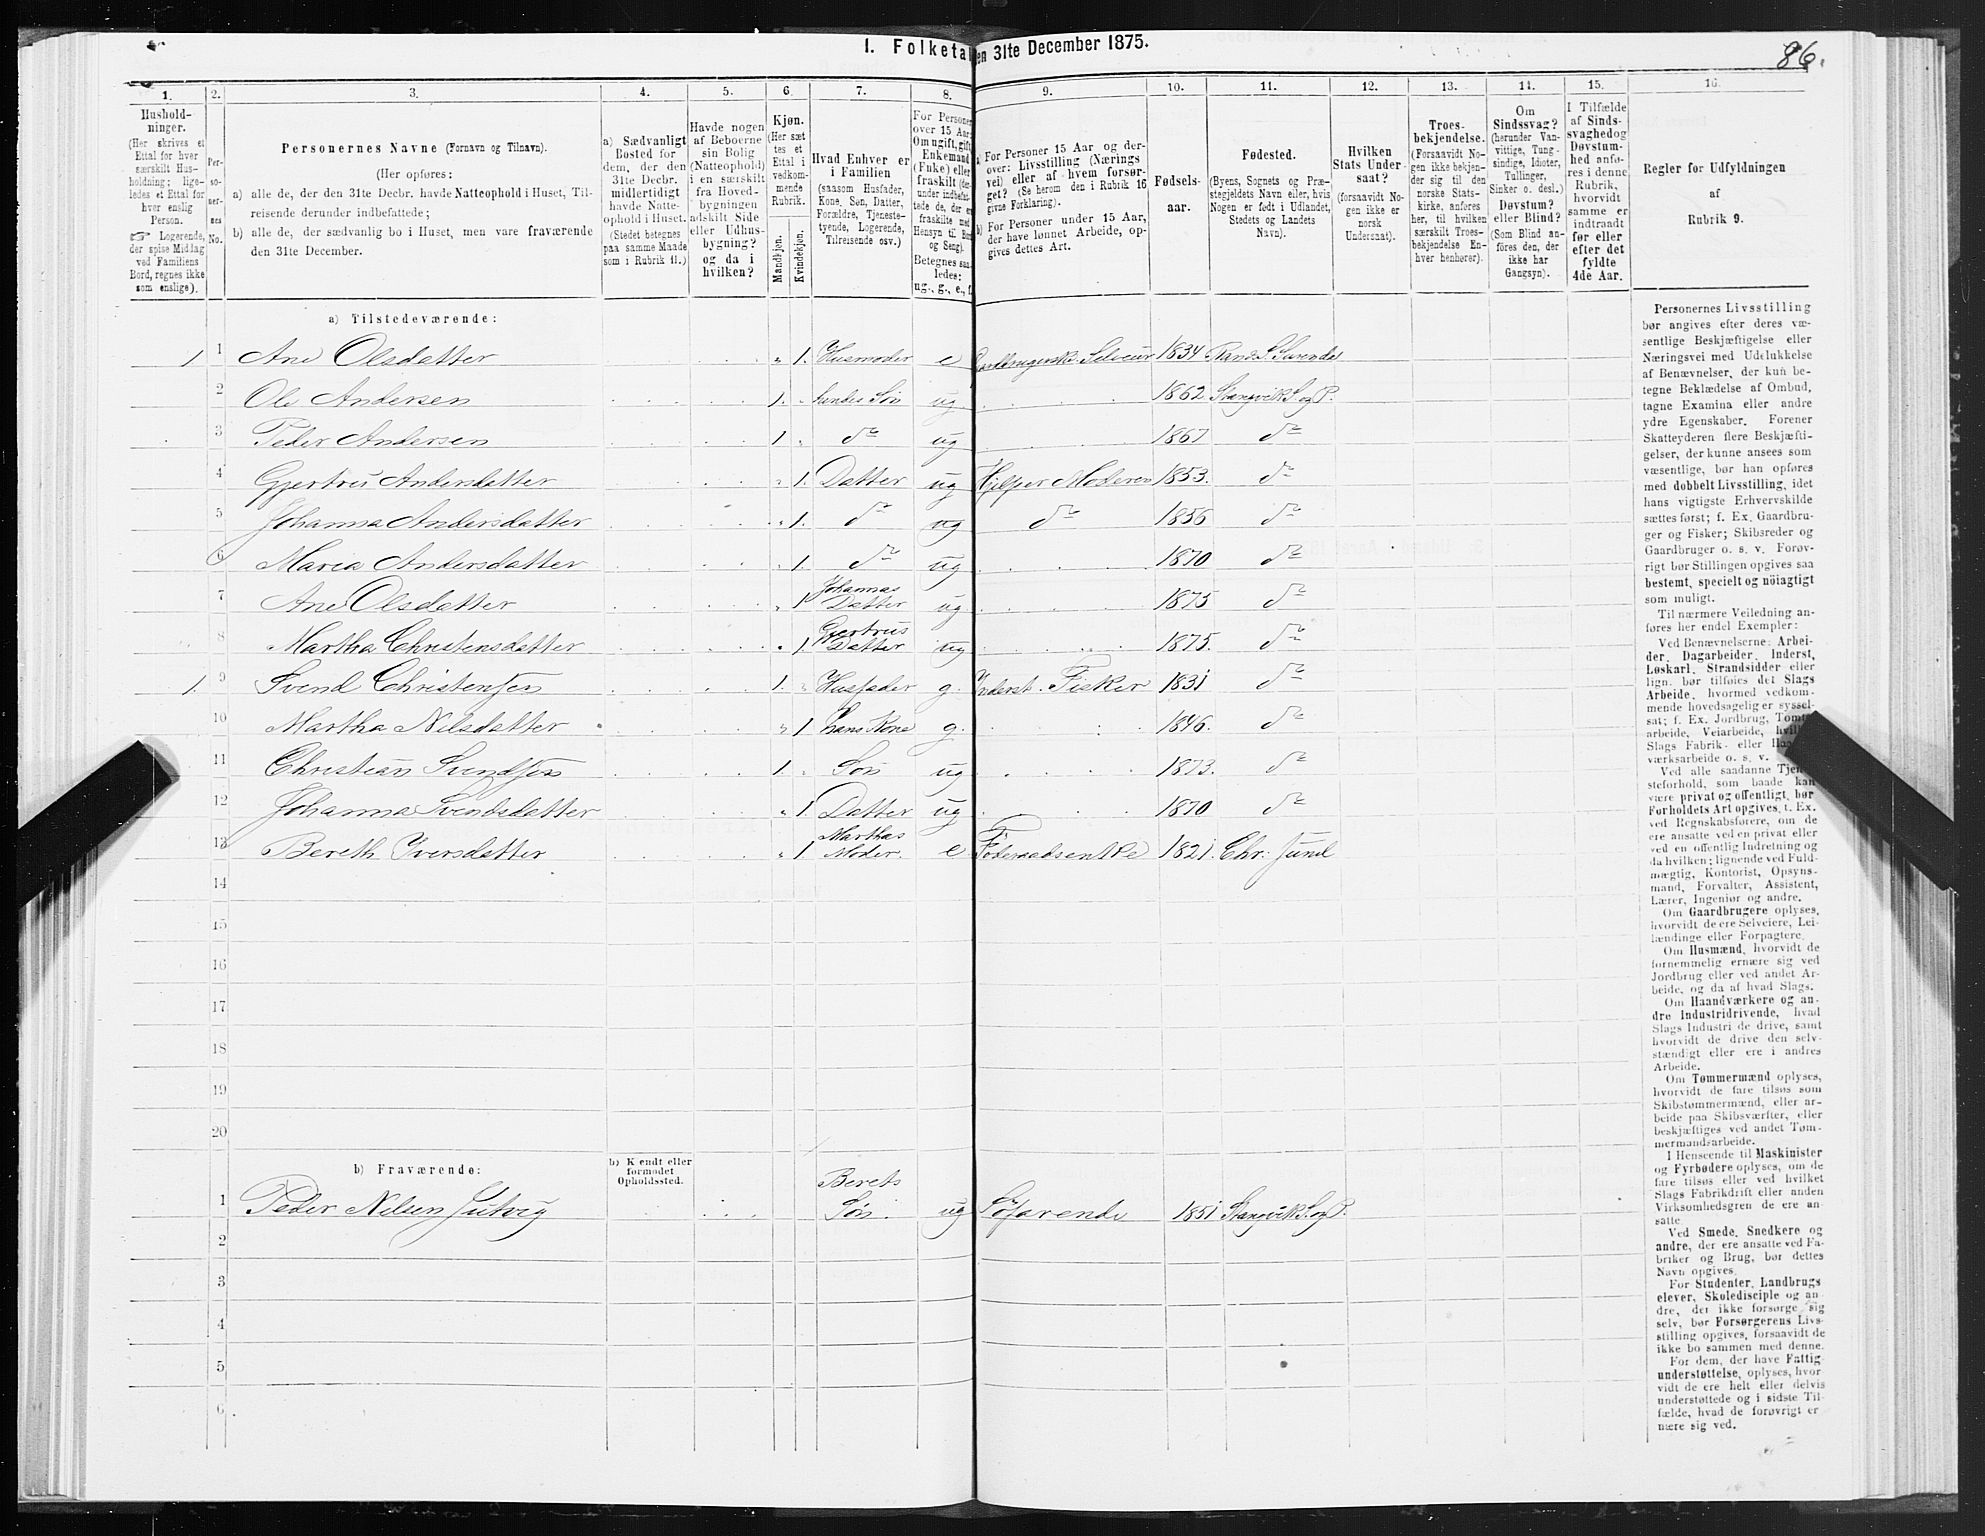 86.
I. Folketal
en 31te December 1875.
1. 2. 3. 4. 5. 6. 7. 8. 9. 10. 11. 12. 13. 14. 15. 16.
Hushold-
ninger.
(Her skrives et
Ettal for hver
særskilt Hus-
holdning; lige-
ledes et Ettal for
hver enslig
Person.
☞ Logerende,
der spise Midlag
ved Familiens
Bord, regnes ikke
som enslige).
Per-
so-
ner-
nes
No.
Personernes Navne (Fornavn og Tilnavn).
(Her opføres:
a) alle de, der den 31te Decbr. havde Natteophold i Huset, Til-
reisende derunder indbefattede;
b) alle de, der sædvanlig bo i Huset, men vare fraværende
den 31te December.
a) Sædvanligt
Bosted for
dem, der den
31te Decbr.
midlertidigt
havde Natte-
ophold i Huset.
(Stedet betegnes
paa samme Maade
som i Rubrik 11.)
Havde nogen
af Beboerne
sin Bolig
(Natteophold)
i en særskilt
fra Hoved-
bygningen
adskilt Side
eller Udhus-
bygning?
og da i
hvilken?
Kjøn.
(Her sæt-
tes et
Ettal i
vedkom-
mende
Rubrik.
Mandkjøn.
Kvindekjøn.
Hvad Enhver er
i Familien
(saasom Husfader,
Kone, Søn, Datter,
Forældre, Tjeneste-
tyende, Logerende,
Tilreisende osv.)
For Personer
over 15 Aar:
Om ugift, gift,
Enkemand
(Enke) eller
fraskilt (der-
under indbefat-
tede de, der er
fraskilte med
Hensyn til Bord
og Seng).
Betegnes saa-
ledes:
ug., g., e., f.
a. For Personer 15 Aar og der-
over: Livsstilling (Nærings
vei) eller af hvem forsør-
get? (Se herom den i Rubrik 16
givne Forklaring).
b) For Personer under 15 Aar,
der have lønnet Arbeide, op-
gives dettes Art.
Fødsels-
aar.
Fødested.
(Byens, Sognets og Præ-
stegjeldets Navn eller, hvis
Nogen er født i Udlandet,
Stedets og Landets
Navn).
Hvilken
Stats Under-
saat?
(forsaavidt No-
gen ikke er
norsk
Undersaat).
Troes-
bekjendelse.
(Forsaavidt No-
gen ikke bekjen-
der sig til den
norske Stats-
kirke, anføres
her, til hvilken
særskilt Troes-
bekjendelse En-
hver henhører).
Om
Sindssvag?
(herunder Van-
vittige, Tung-
sindige, Idioter,
Tullinger,
Sinker o. desl.)
Døvstum?
eller Blind?
(Som Blind an-
føres den, der
ikke har
Gangsyn).
I Tilfælde
af Sinds-
svaghedog
Døvstum-
hed anfø-
res i denne
Rubrik,
hvorvidt
samme er
indtraadt
før eller
efter det
fyldte
4de Aar.
Regler for Udfyldningen
af
Rubrik 9.
a) Tilstedeværende:
1 1 Ane Olsdatter 1. Husmoder e Gaardbrugerske Selveier 1834 Surende
2 Ole Andersen 1. hendes Søn ug 1862 Stangvik S. og P.
3 Peder Andersen 1 do ug 1867 do
4 Gjertru Andersdatter 1. Datter ug Hjelper Moderen 1853. do
5 Johanna Andersdatter 1. do ug do 1856 do
6 Maria Andersdatter 1. do ug 1870 do
7 Ane Olsdatter 1 Johannas Datter ug 1875 do
8 Martha Christensdatter 1 Gjertrus Datter ug 1875. do
1. 9 Svend Christensen 1. Husfader g. Inderst. Fisker 1831 do
10 Martha Nilsdatter 1 hans Kone g. 1846. do
11 Christian Svendsen 1. Søn ug 1873. do
12 Johanna Svendsdatter 1 Datter ug 1870 do
13 Bereth Iversdatter 1 Marthas Moder. e Føderaadsenke 1821. Chr: Sund
14
15
16
17
18
19
20
b) Fraværende:
b) Kjendt eller
formodet
Opholdssted.
1 Peder Nilsen Jutvig Berets Søn. ug Søfarende 1851 Stangvik S. og P.
2
3
4
5
6
Personernes Livsstilling
bør angives efter deres væ-
sentlige Beskjæftigelse eller
Næringsvei med Udelukkelse
af Benævnelser, der kun be-
tegne Beklædelse af Ombud,
tagne Examina eller andre
ydre Egenskaber. Forener
Skatteyderen flere Beskjæfti-
gelser, der kunne ansees som
væsentlige, bør han opføres
med dobbelt Livsstilling, idet
hans vigtigste Erhvervskilde
sættes først; f. Ex. Gaardbru-
ger og Fisker; Skibsreder og
Gaardbruger o. s. v. Forøv-
rigt bør Stillingen opgives saa
bestemt, specielt og nöiagtigt
som muligt.
Til nærmere Veiledning an-
føres her endel Exempler:
Ved Benævnelserne: Arbei-
der, Dagarbeider, Inderst,
Løskarl, Strandsidder eller
lign. bør tilføies det Slags
Arbeide, hvormed vedkom-
mende hovedsagelig er syssel-
sat; f. Ex. Jordbrug, Tømte-
arbeide, Veiarbeide, hvilket
Slags Fabrik- eller Haand-
værksarbeide o. s. v.
Ved alle saadanne Tjene-
steforhold, som baade kan
være privat og offentligt, bør
Forholdets Art opgives, t. Ex.
ved Regnskabsførere, om de
ere ansatte ved en privat eller
ved en offentlig Indretning og
da hvilken; lignende ved Fuld-
mægtig, Kontorist, Opsyns-
mand, Forvalter, Assistent,
Lærer, Ingeniør og andre.
Om Gaardbrugere oplyses,
hvorvidt de ere Selveiere, Lei-
lændinge eller Forpagtere.
Om Husmænd, hvorvidt de
fornemmelig ernære sig ved
Jordbrug eller ved andet Ar-
beide, og da af hvad Slags.
Om Haandværkere og an-
dre Industridrivende, hvad
Slags Industri de drive, samt
hvorvidt de drive den selv-
stændigt eller ere i andres
Arbeide.
Om Tømmermænd oplyses,
hvorvidt de fare tilsøs som
Skibstømmermænd, eller ar-
beide paa Skibsværfter, eller
beskjæftiges ved andet Tøm-
mermandsarbeide.
I Henseende til Maskinister
og Fyrbødere oplyses, om de
fare tilsøs eller ved hvilket
Slags Fabrikdrift eller anden
Virksomhedsgren de ere an-
satte.
Ved Smede, Snedkere og
andre, der ere ansatte ved Fa-
briker og Brug, bør dettes
Navn opgives.
For Studenter, Landbrugs
elever, Skoledisciple og an
dre, der ikke forsørge sig
selv, bør Forsørgerens Livs-
stilling opgives, forsaavidt de
ikke bo sammen med denne.
For dem, der have Fattig-
understøttelse, oplyses, hvor
vidt de ere helt eller delvis
understøttede og i sidste Til-
fælde, hvad de forøvrigt er
nære sig ved.